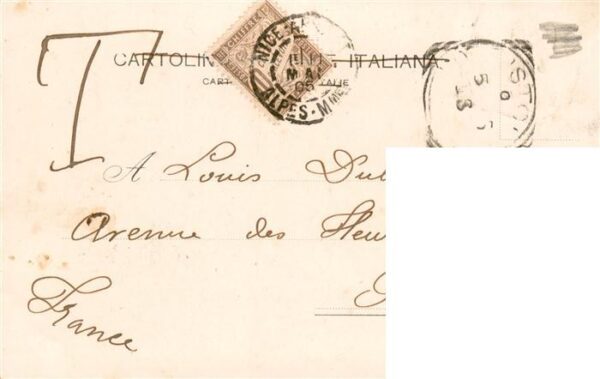 T
CARTOLIN E ITALIANA
CART ALIE
A CHIFFRE
NICE
MAI
05
ALPES-MMES
STO
5
A Louis Dul
Avenue des Fleu
France